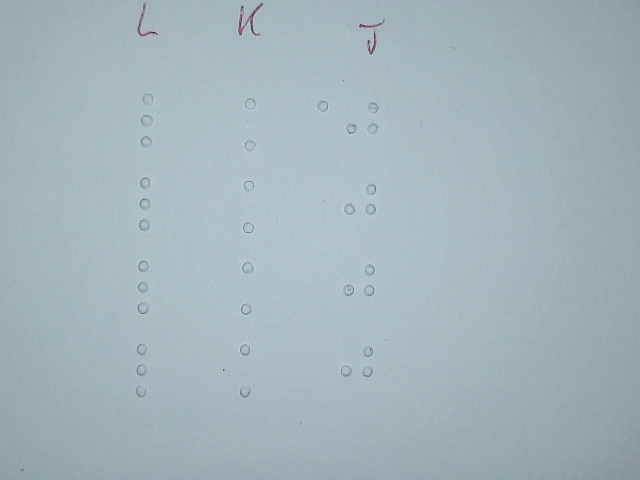 L K J
⠇⠀⠅⠈⠚
⠇⠀⠅⠀⠚
⠇⠀⠅⠀⠚
⠇⠀⠅⠀⠚